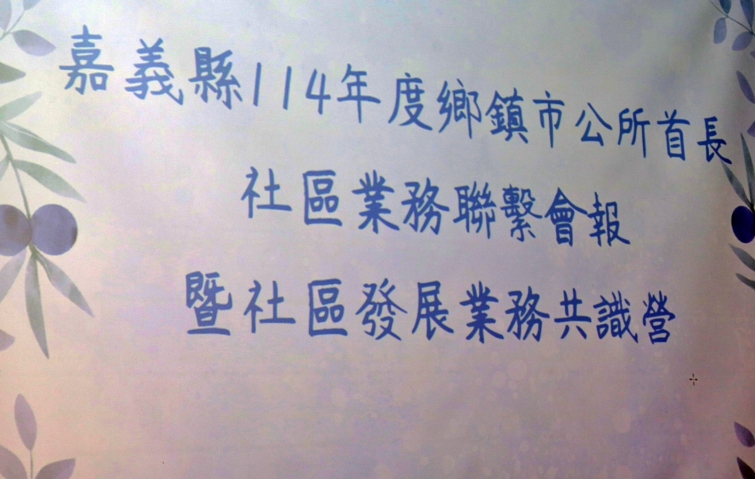 嘉義縣114年度鄉鎮市公所首長
社區業務聯繫會報
暨社區發展業務共識營